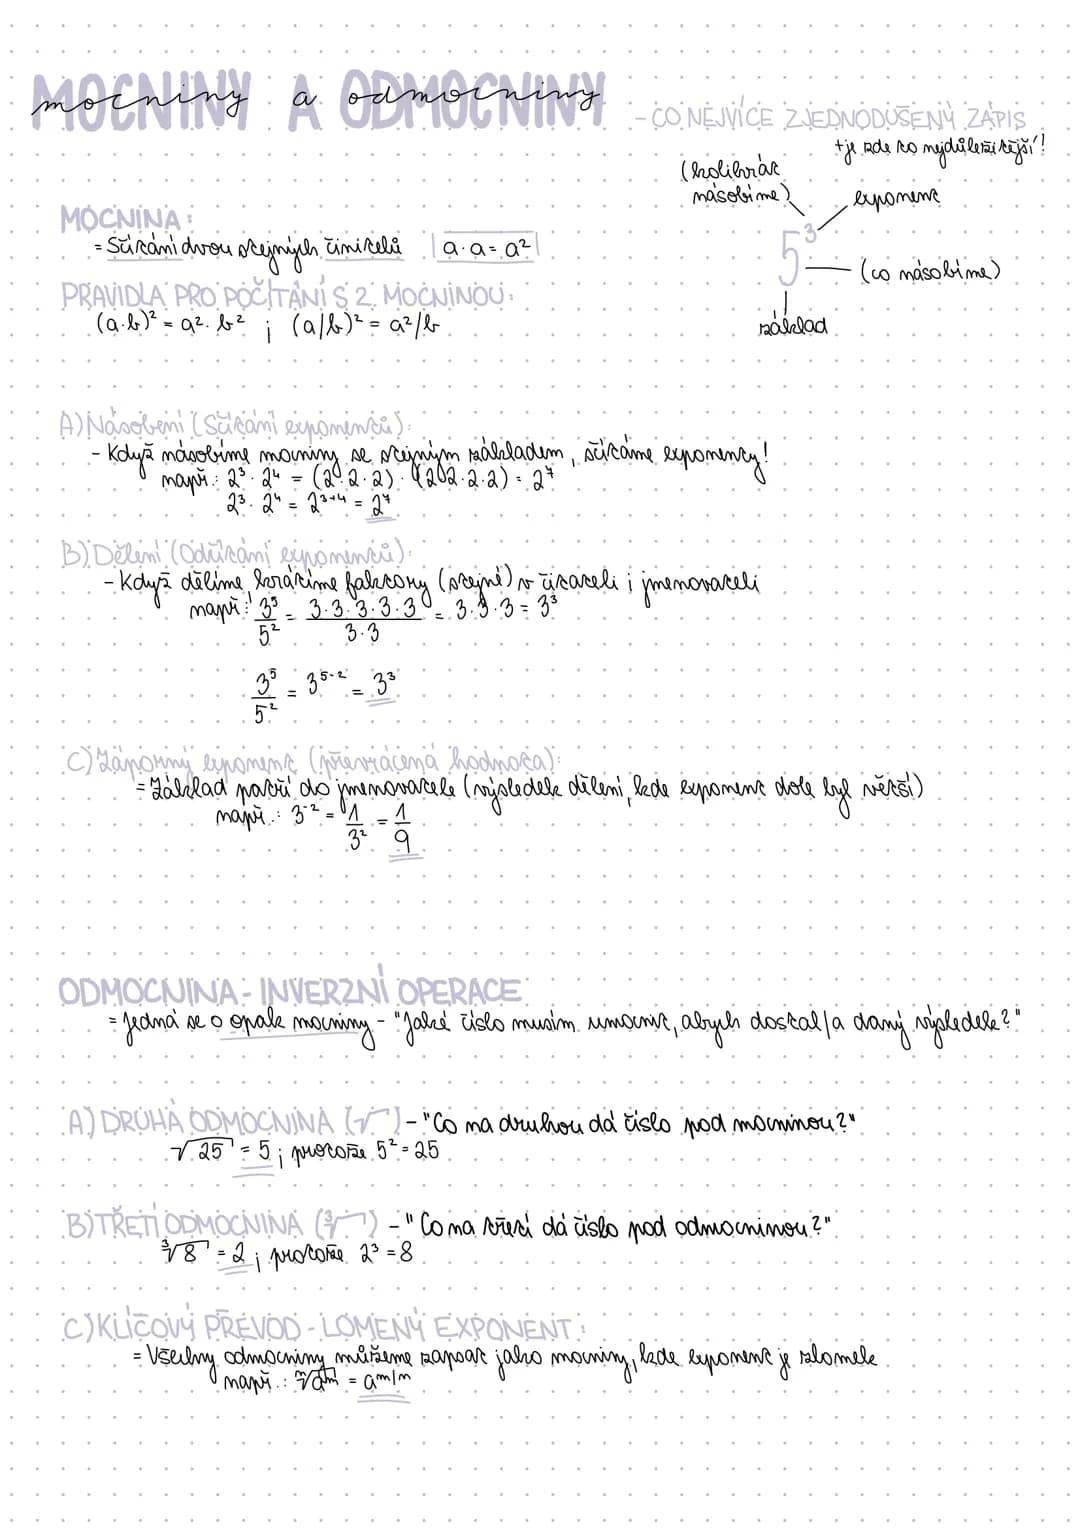 MOCNINY A ODMOCNINY
mocniny a odmocniny
- CO NEJVÍCE ZJEDNODUŠENÝ ZÁPIS
+ je zde to nejdůležitější!
(kolikrát
násobíme)
exponent
5³
(co násobíme)
základ
MOCNINA:
= Sčítání dvou stejných činitelů a·a = a²
PRAVIDLA PRO POČÍTÁNÍ S 2. MOCNINOU:
(a·b)² = a²·b² ; (a/b)² = a²/b
A) Násobení (Sčítání exponentů):
- Když násobíme mocniny se stejným základem, sčítáme exponenty!
např.: 2³·2⁴ = (2·2·2)·(2·2·2·2) = 2⁷
2³·2⁴ = 2³⁺⁴ = 2⁷
B) Dělení (Odčítání exponentů):
- Když dělíme krátíme faktory (stejné) v čitateli i jmenovateli
např.: 3⁵/5² = 3·3·3·3·3/3·3 = 3·3·3 = 3³
3⁵/5² = 3⁵⁻² = 3³
C) Záporný exponent (převrácená hodnota):
= Základ patří do jmenovatele (výsledek dělení, kde exponent dole byl větší)
např.: 3⁻² = 1/3² = 1/9
ODMOCNINA - INVERZNÍ OPERACE
= Jedná se o opak mocniny - "Jaké číslo musím umocnit, abych dostal/a daný výsledek?"
A) DRUHÁ ODMOCNINA (√) - "Co na druhou dá číslo pod mocninou?"
√25 = 5 ; protože 5² = 25
B) TŘETÍ ODMOCNINA (³√) - "Co na třetí dá číslo pod odmocninou?"
³√8 = 2 ; protože 2³ = 8
C) KLÍČOVÝ PŘEVOD - LOMENÝ EXPONENT:
= Všechny odmocniny můžeme zapsat jako mocniny, kde exponent je zlomek
např.: ⁿ√aᵐ = aᵐ/ⁿ